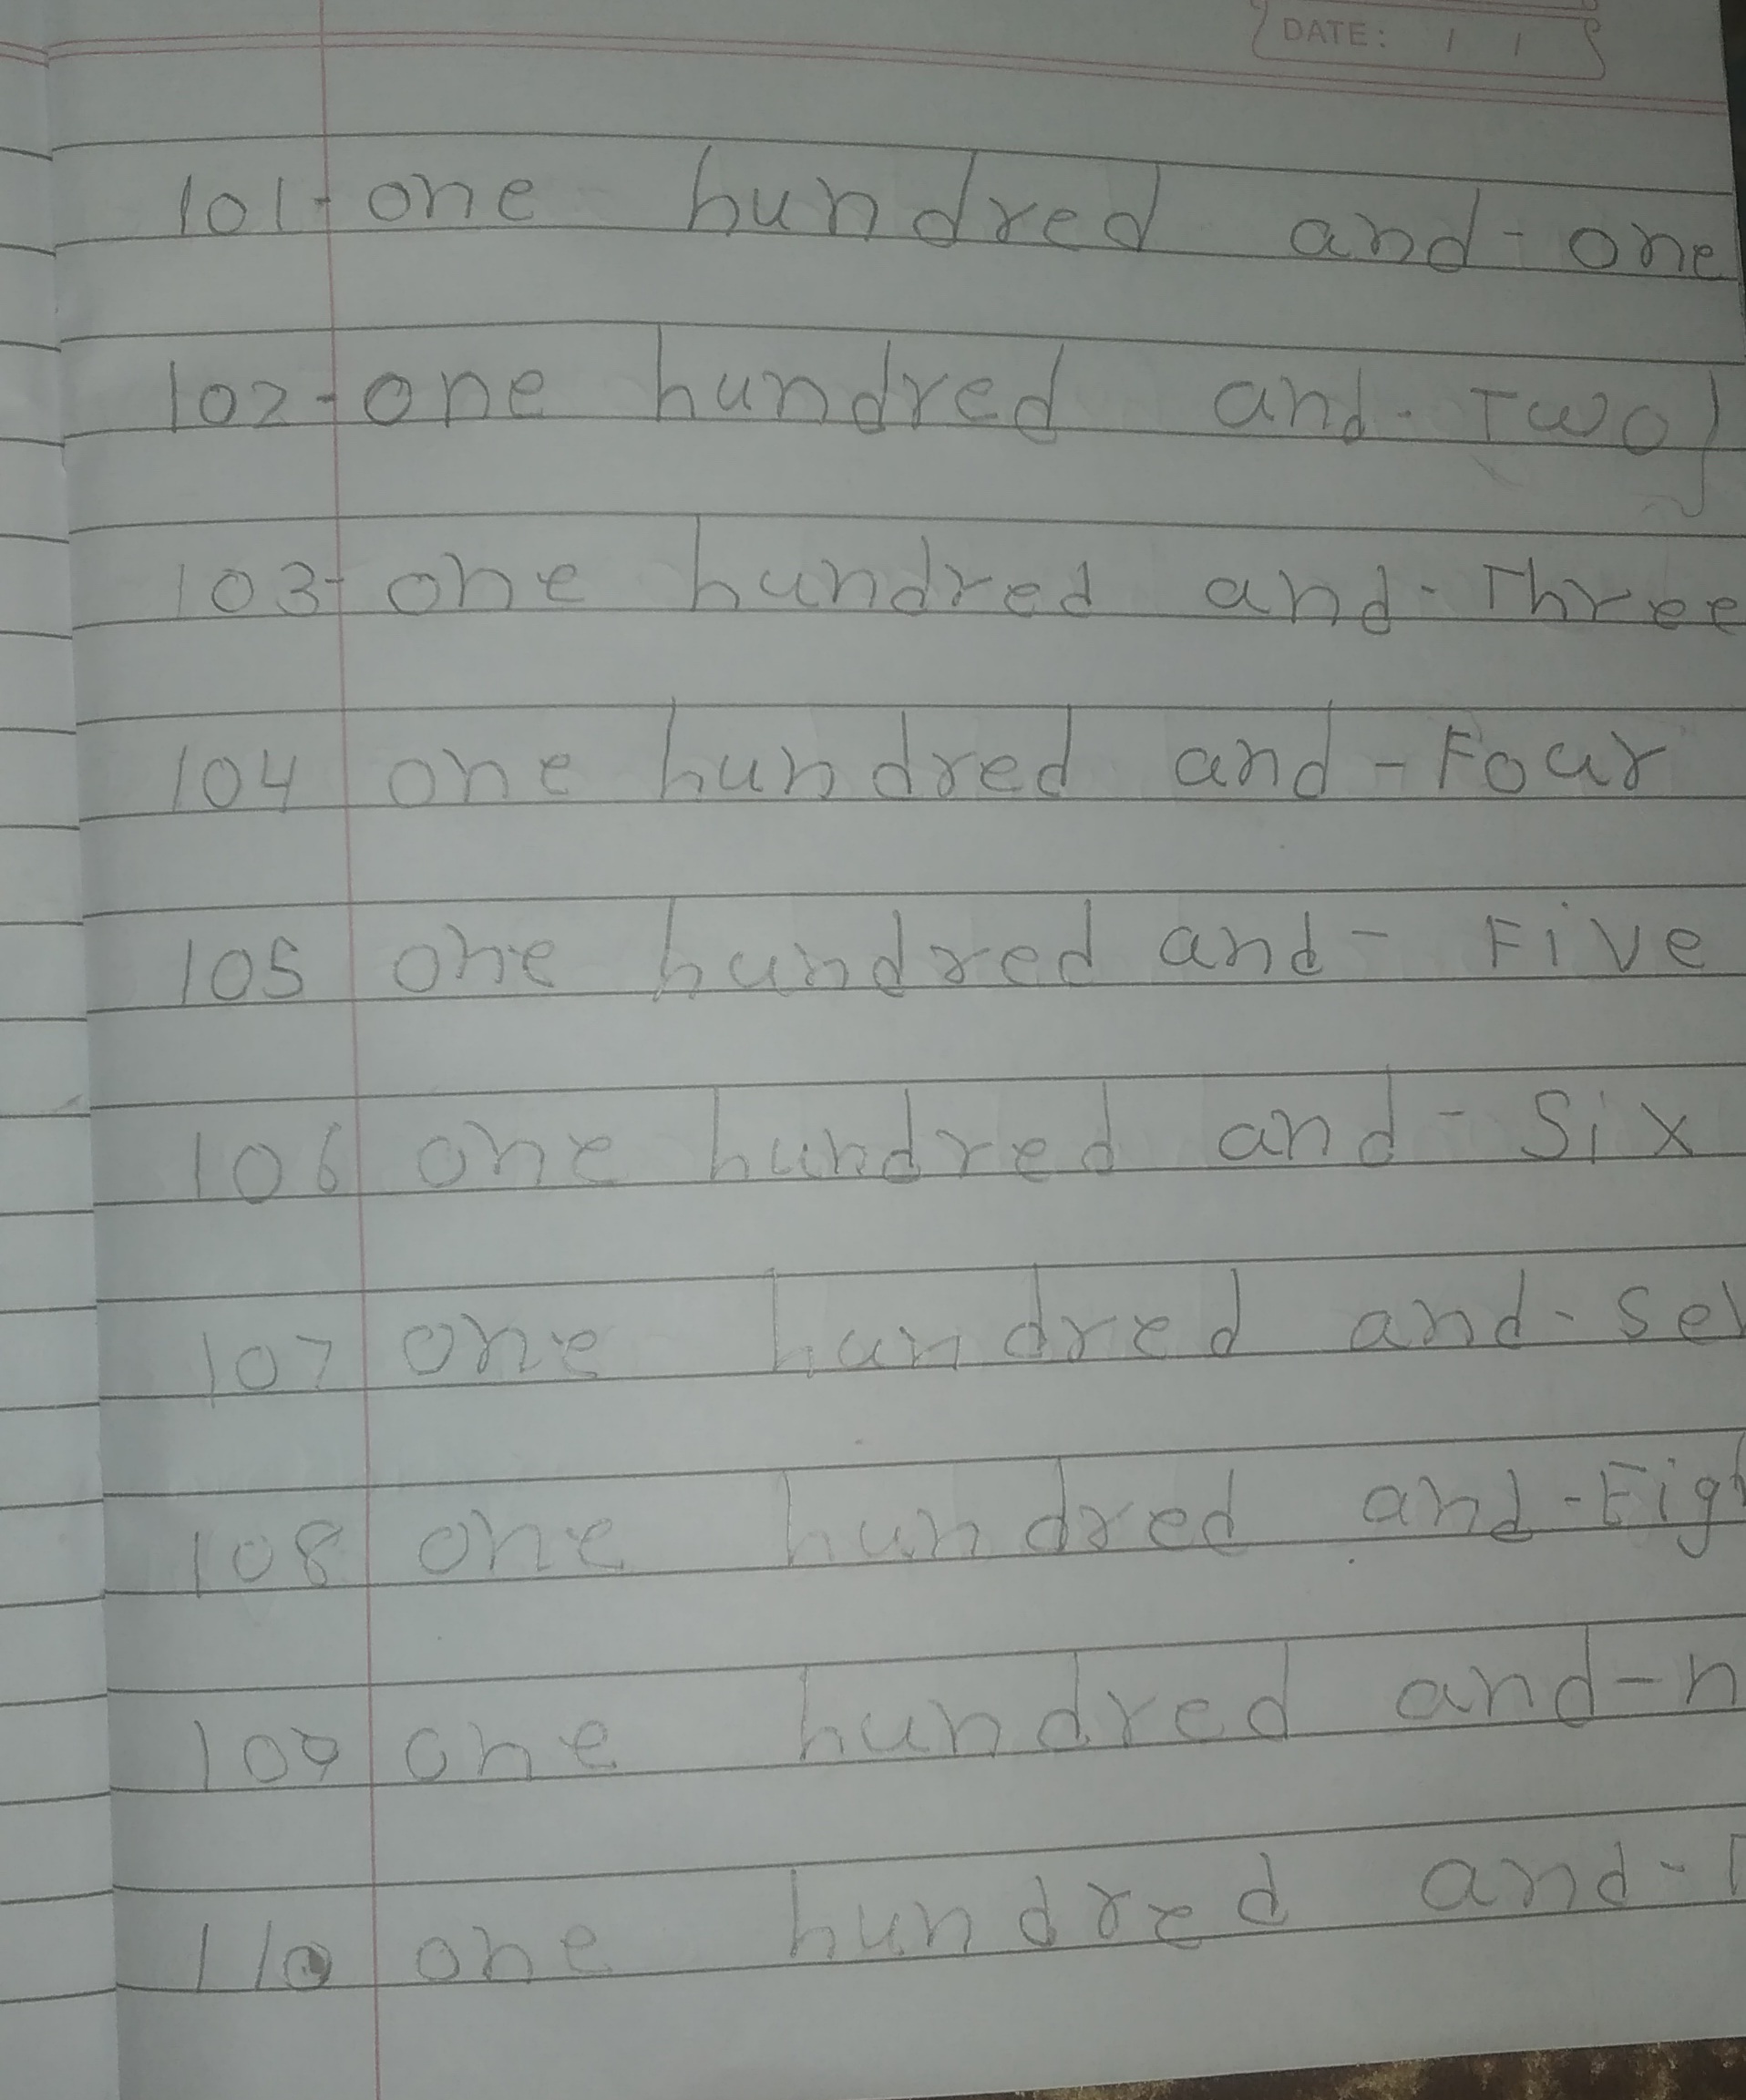 DATE: / /
101-one hundred and-one
102-one hundred and-Two
103-one hundred and-Three
104 one hundred and-Four
105 one hundred and-Five
106 one hundred and-Six
107 one hundred and-sev
108 one hundred and-Eigh
109 one hundred and-n
110 one hundred and-